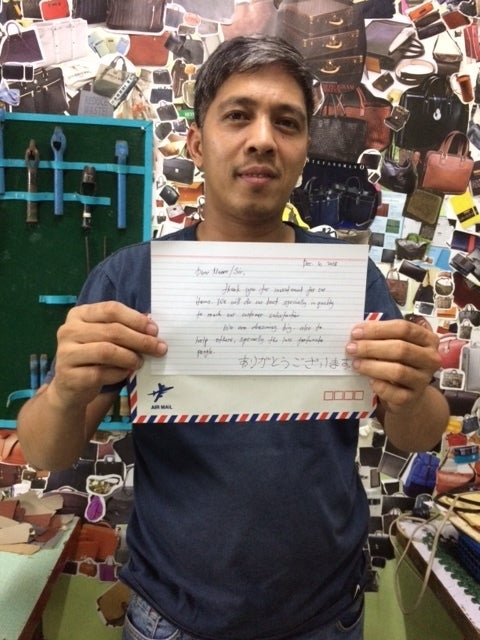 Dec. 6, 2018
Dear Maam/Sir,
Thank you for investment for our
items. We will do our best specially in quality
to reach our customer satisfaction
We are dreaming big also to
help others, specially the less fortunate
people.
ありがとうございます
AIR MAIL